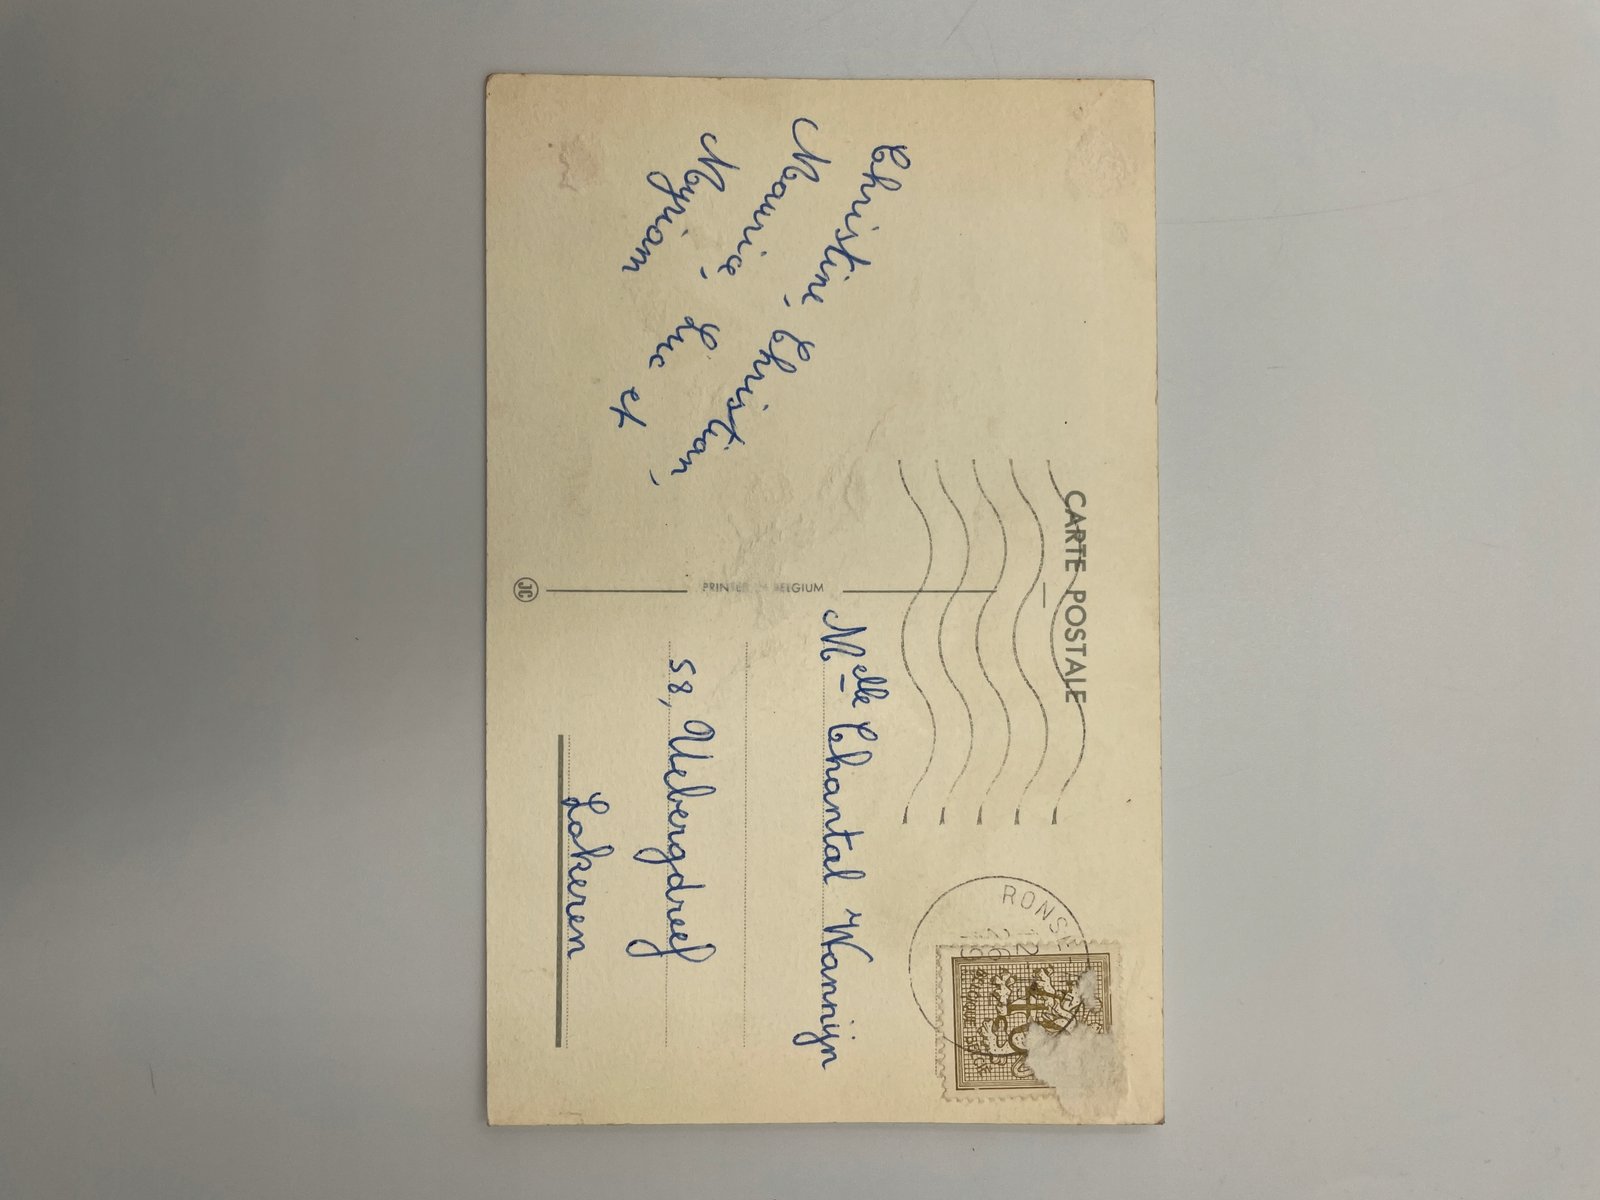 CARTE POSTALE
Christine - Christian -
Maurice - Luc et
Myriam
RONSE
BELGIQUE BELGIË
M^elle Chantal Wannijn
58, Uebergdreef
Lokeren
PRINTED IN BELGIUM
JC